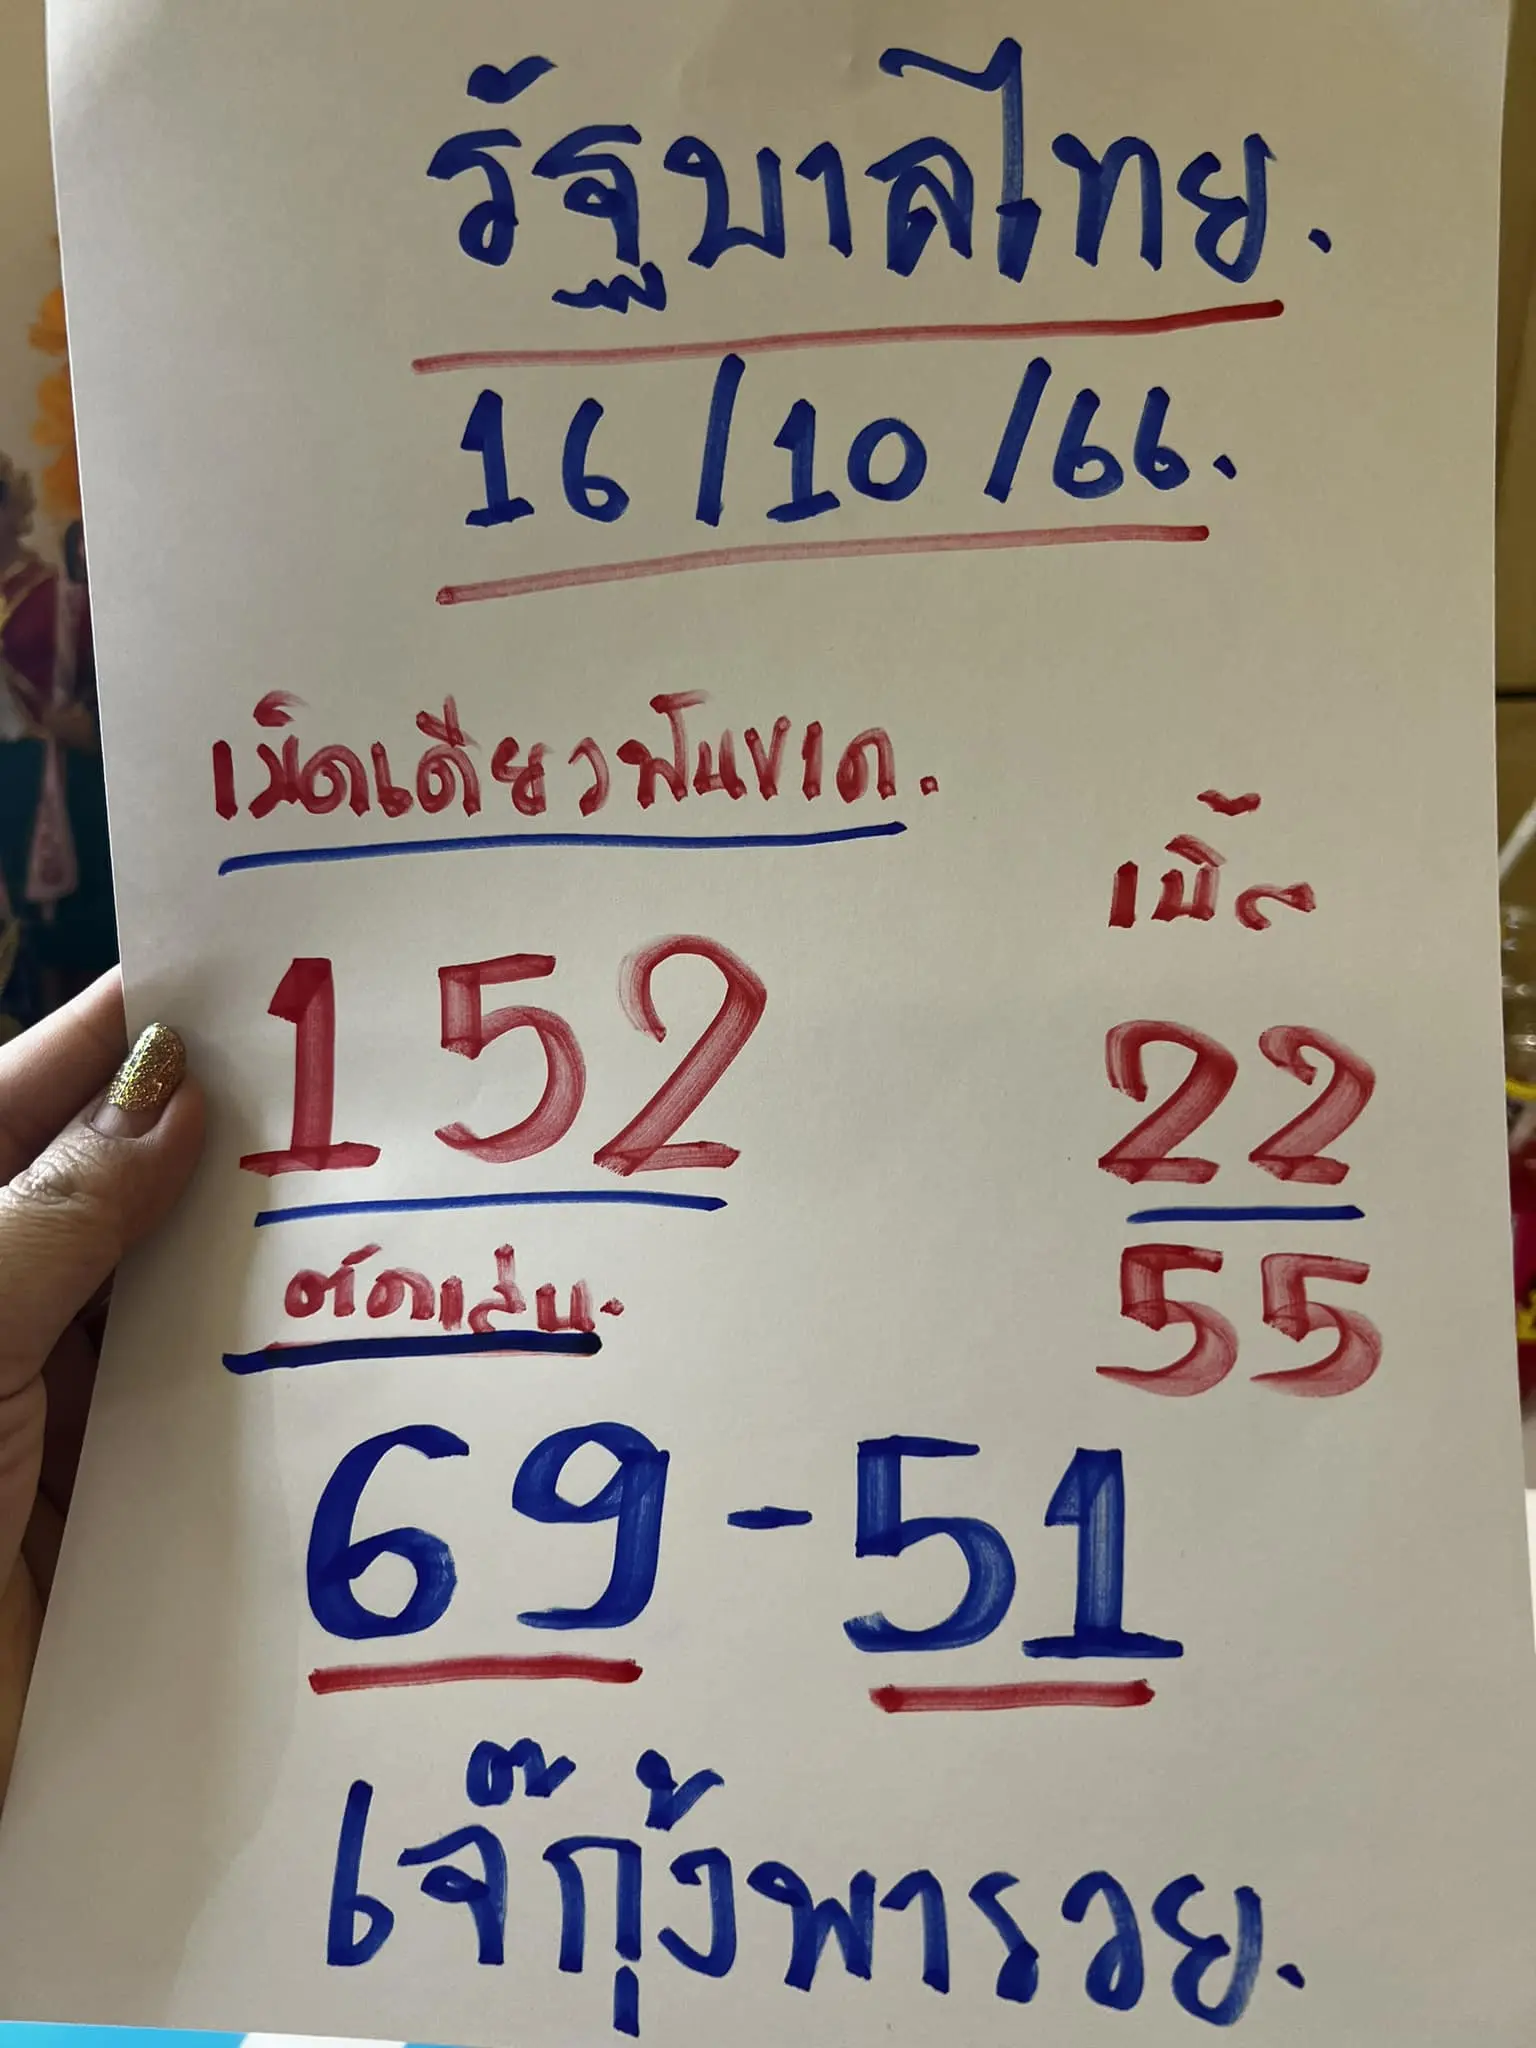 รัฐบาลไทย.
16/10/66.
เม็ดเดียวฟันขาด.
เบิ้ล
152
22
55
ตัดเล่น.
69-51
เจ๊กุ้งพารวย.